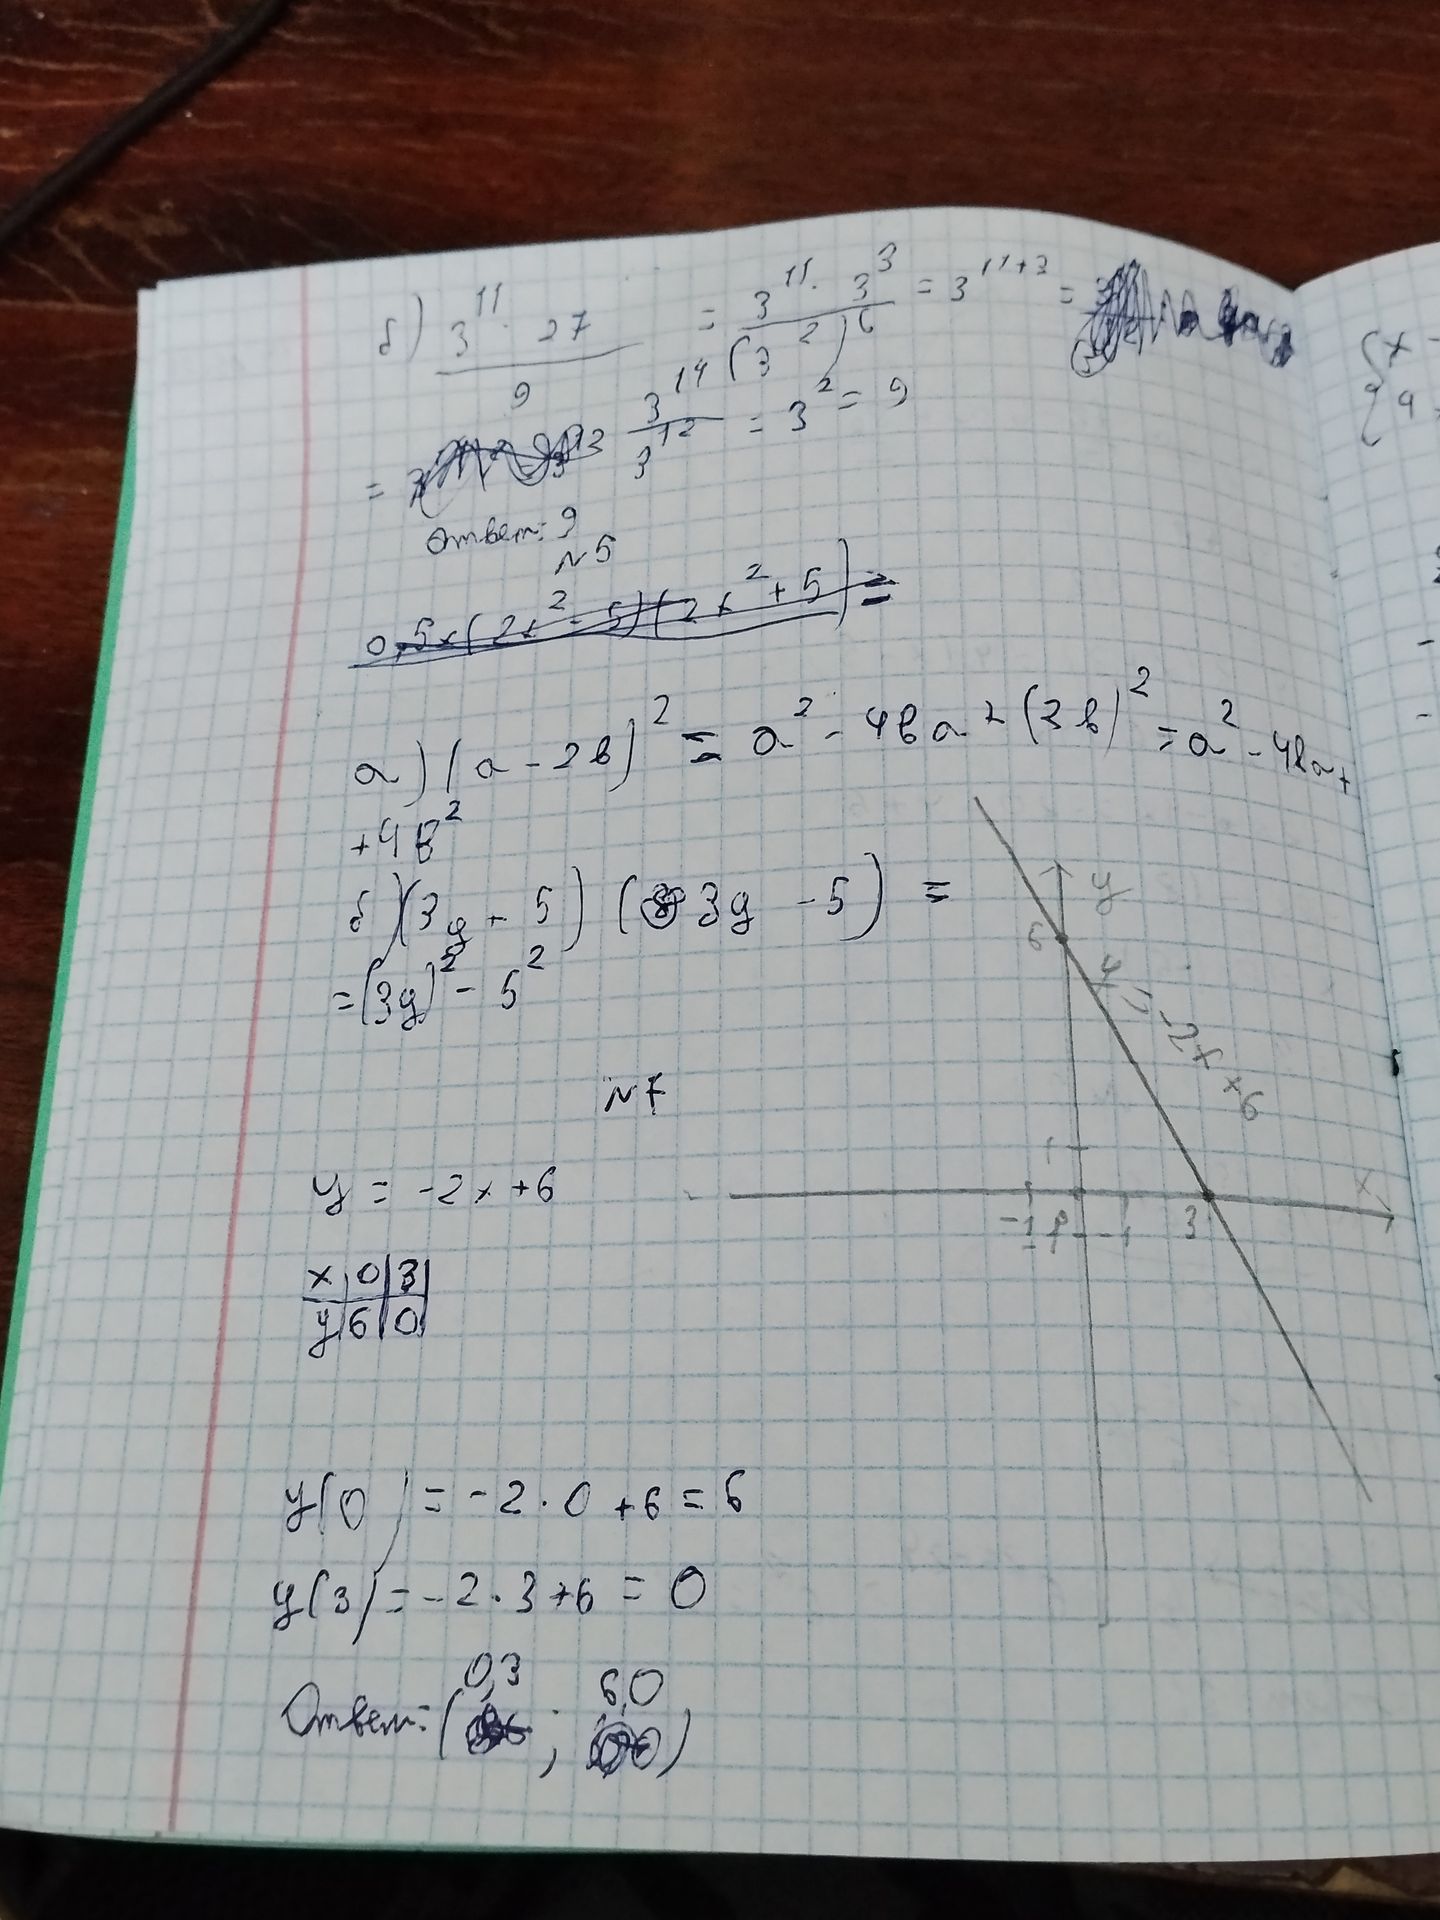 б) 3^11 · 27 / 9 = 3^11 · 3^3 / (3^2)^6 = 3^11+3 =
= 3^14 / 3^12 = 3^2 = 9
Ответ: 9
N5
0,5x(2x^2 - 5)(2x^2 + 5) =
а) (a - 2b)^2 = a^2 - 4ba + (2b)^2 = a^2 - 4ba +
+ 4b^2
б) (3y + 5) (3y - 5) =
= (3y)^2 - 5^2
N7
y = -2x + 6
x 0 3
y 6 0
y
6
y = -2x + 6
1
-1 0 1 3 x
y(0) = -2 · 0 + 6 = 6
y(3) = -2 · 3 + 6 = 0
Ответ: (0,3 ; 6,0)